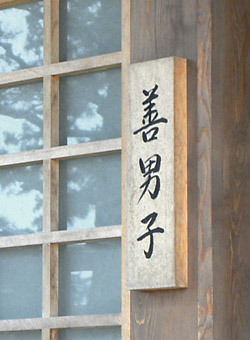 善男子